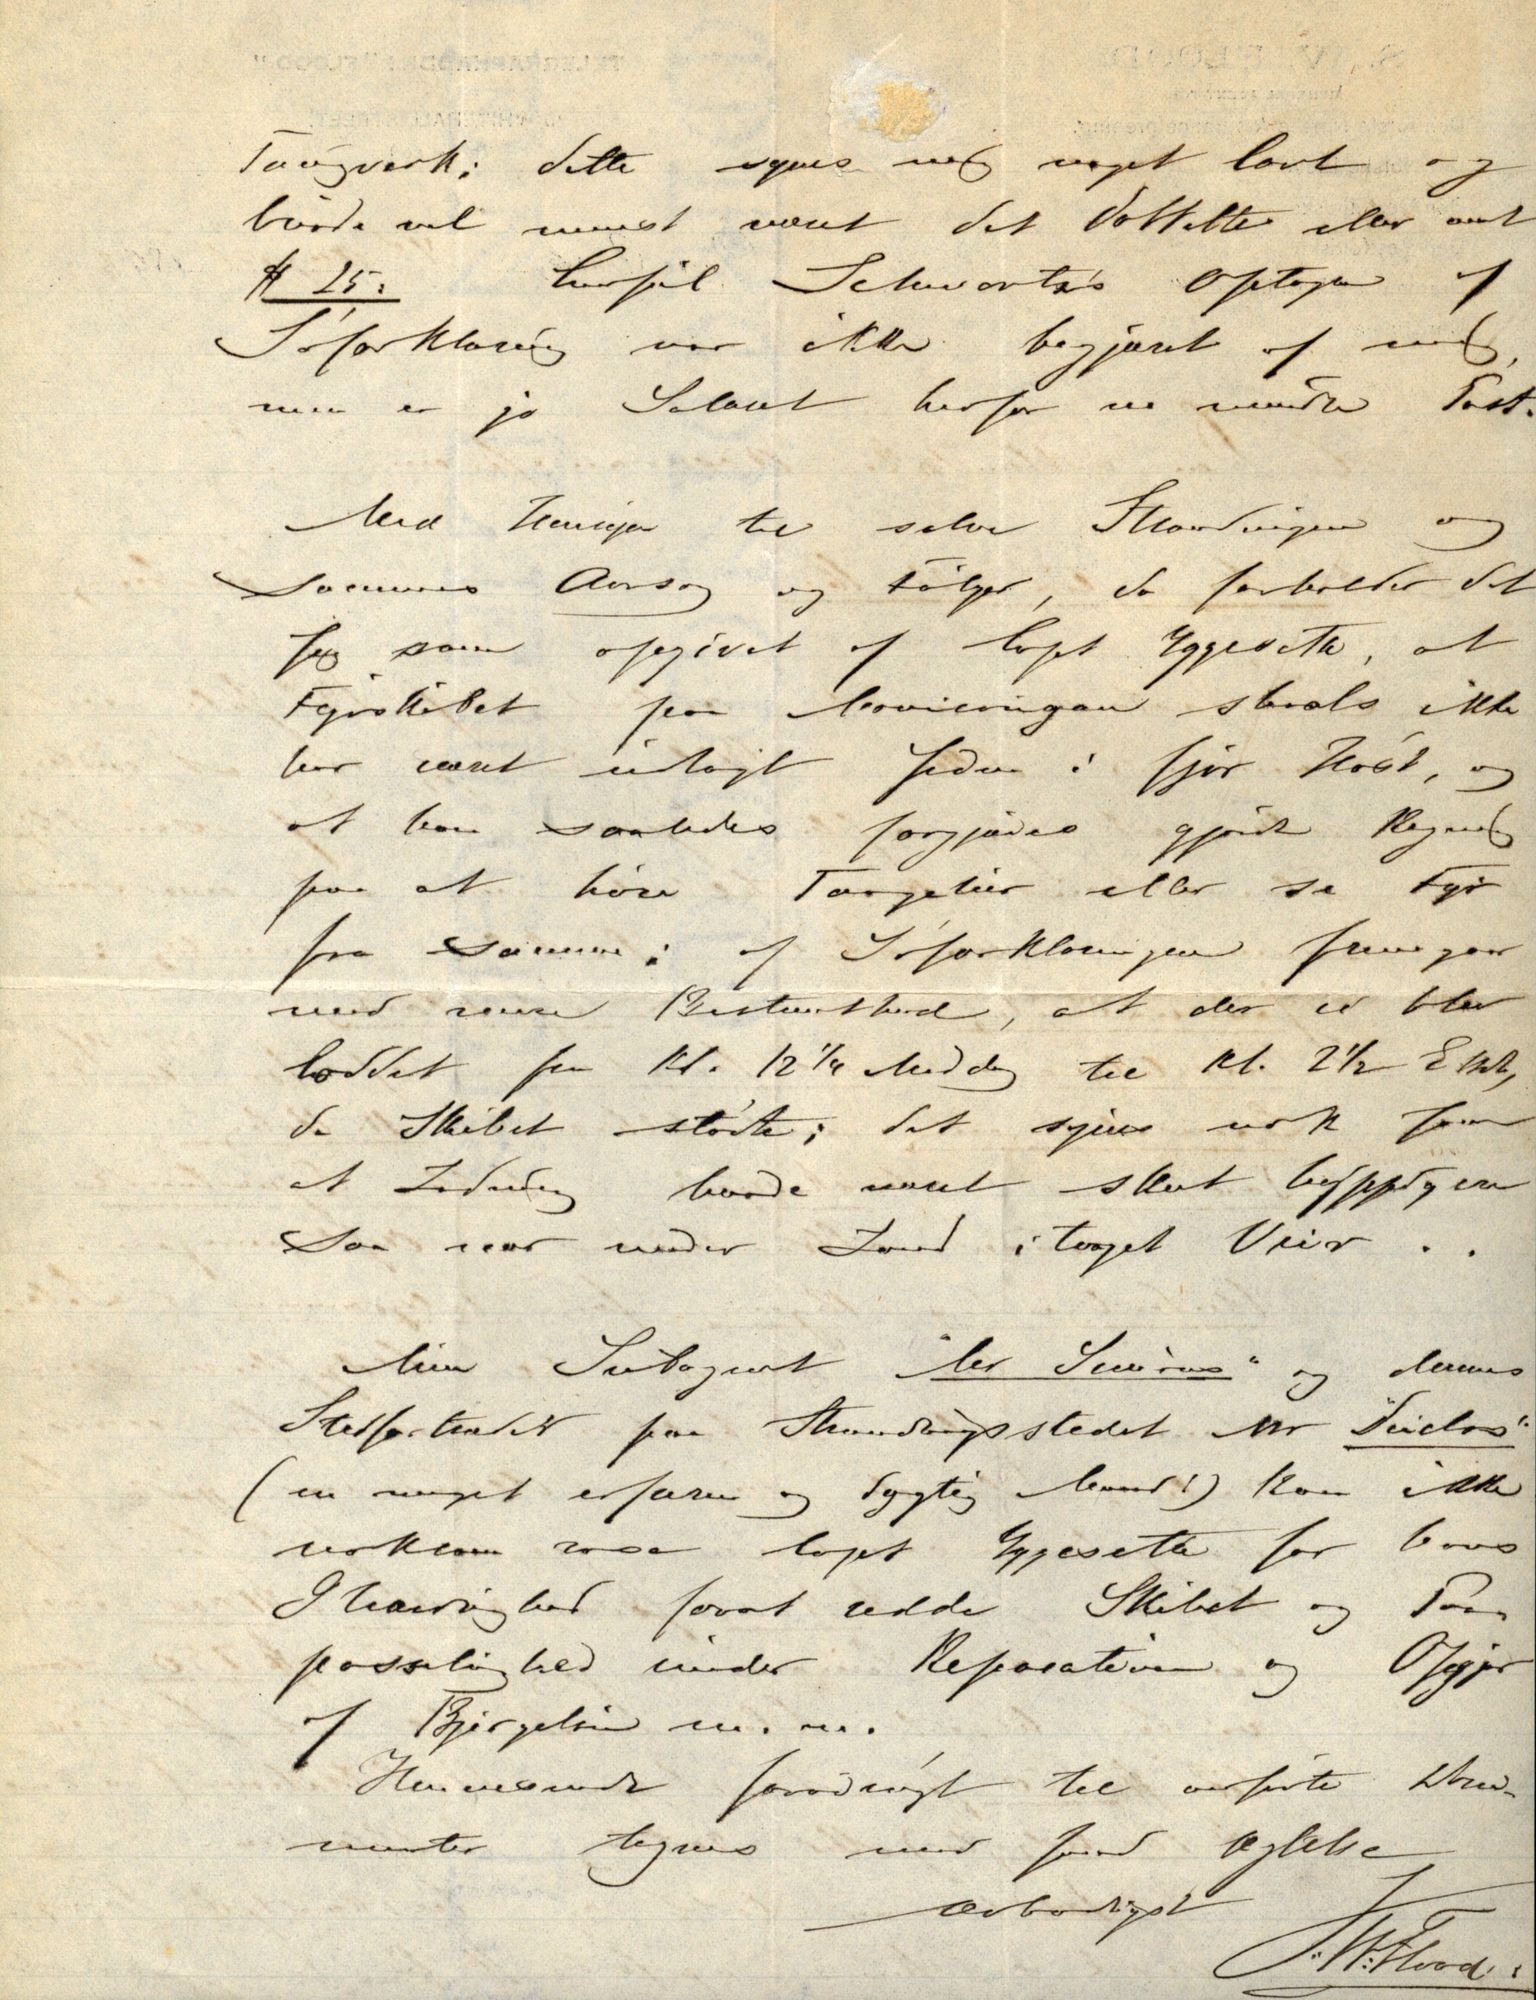 Taugverk; dette synes mig meget lavt og
burde vel mindst været det Dobbelte eller omt
$ 25: Consul Schwartz's Optagen af
Søforklaring var ikke begjæret af mig,
men er jo Salæret herfor en mindre Post.
Med Hensyn til selve Strandingen og
Sammes Aarsag og Følger, da forholder det
sig som opgivet af Capt Yggeseth, at
Fyrskibet paa shoals ikke
har været udlagt siden i fjor Høst, og
at han saaledes forgjæves gjorde Regning
paa at høre Taagelur eller se Fyr
fra Samme; af Søforklaringen fremgaar
med Bestemthed, at der ei blev
loddet fra Kl. 12 1/4 Middag til Kl. 2 1/2 Eftm,
da Skibet stødte; det synes nok som
at Lodning burde været skeet hyppigere
saa nær under Land i taaget Veir . .
Min Subagent "Mr " og dennes
Stedfortræder paa Strandingsstedet Mr "Duclos"
(en meget erfaren og dygtig Mand!) kan ikke
noksom rose Capt Yggeseth for hans
Ihærdighed forat redde Skibet og Paa-
passelighed under Reparation og Opgjør
af Bjergeløn m. m.
Henvisende forøvrigt til anførte Doku-
menter tegnes med sand Agtelse
Ærbødigst
S. W. Flood.